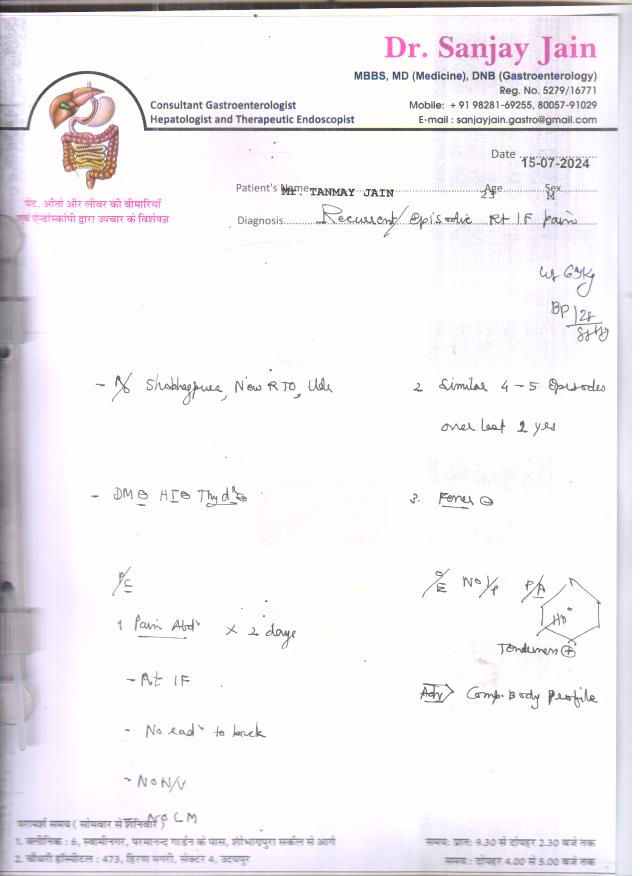 Dr. Sanjay Jain
MBBS, MD (Medicine), DNB (Gastroenterology)
Reg. No. 5279/16771
Consultant Gastroenterologist
Mobile: + 91 98281-69255, 80057-91029
Hepatologist and Therapeutic Endoscopist
E-mail : sanjayjain.gastro@gmail.com
Date 15-07-2024
पेट, आँतों और लीवर की बीमारियाँ
एवं एण्डोस्कोपी द्वारा उपचार के विशेषज्ञ
Patient's Name Mr. TANMAY JAIN Age 23 Sex M
Diagnosis Recurrent/Episodic Rt IF pain
BP
- Shobhagpura, New RTO, Udr
2 Similar 4-5 Episodes
over last 2 yrs
- DM⊖ HT⊖ Thyd⊖
3. Fever ⊖
P/C
O/E P/A
1 Pain Abd x 2 days
Tenderness ⊕
- Rt IF
Adv Comp. Body Profile
- No rad to back
- No N/V
- No LM
परामर्श समय ( सोमवार से शनिवार )
1. क्लीनिक : 6, स्वामीनगर, परमानन्द गार्डन के पास, शोभागपुरा सर्कल से आगे
समय: प्रात: 9.30 से दोपहर 2.30 बजे तक
2. चौधरी हॉस्पीटल : 473, हिरण मगरी, सेक्टर 4, उदयपुर
समय : दोपहर 4.00 से 5.00 बजे तक